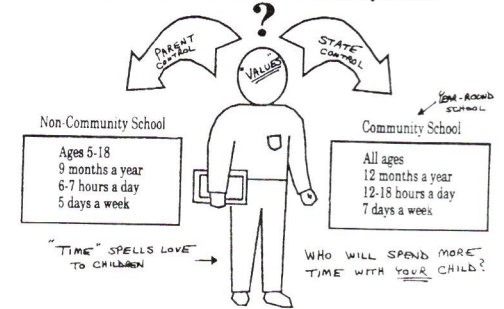 ?
PARENT
CONTROL
STATE
CONTROL
"VALUES"
YEAR-ROUND
SCHOOL
Non-Community School
Ages 5-18
9 months a year
6-7 hours a day
5 days a week
Community School
All ages
12 months a year
12-18 hours a day
7 days a week
"TIME" SPELLS LOVE
TO CHILDREN
WHO WILL SPEND MORE
TIME WITH YOUR CHILD?